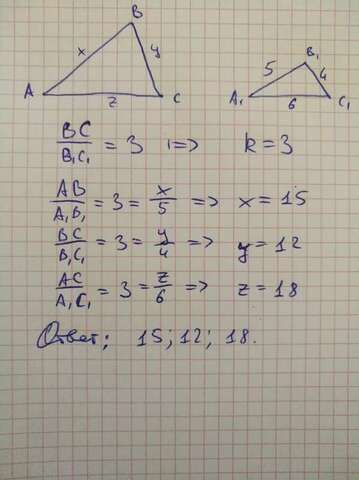 B
x
y
A
z
C
B₁
5
4
A₁
6
C₁
BC/B₁C₁ = 3 => k = 3
AB/A₁B₁ = 3 = x/5 => x = 15
BC/B₁C₁ = 3 = y/4 => y = 12
AC/A₁C₁ = 3 = z/6 => z = 18
Ответ: 15; 12; 18.